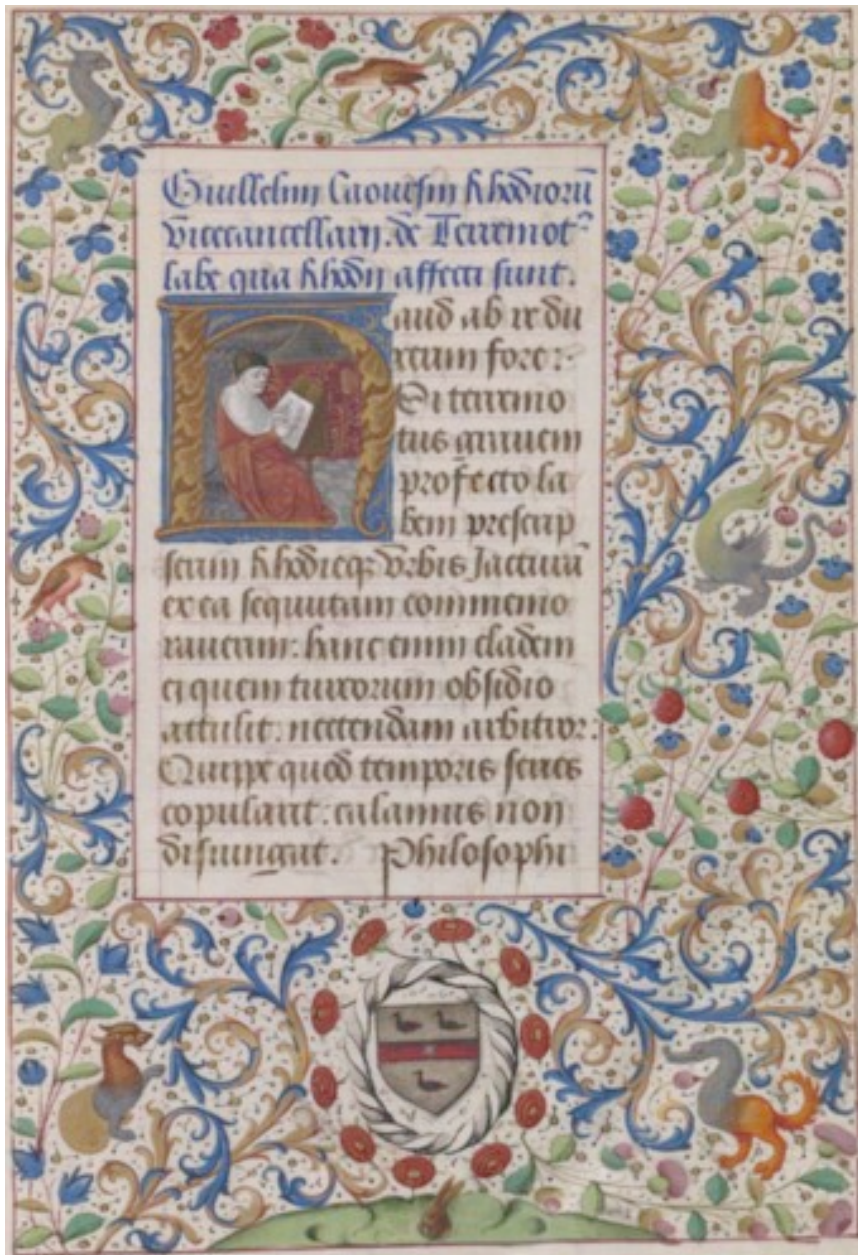 Guillelmi Caoursin Rhodiorū
vicecancellarij. de Terremot⁹
labe qua Rhodij affecti sunt.
Haud ab re du
ctum fore:
Si terremo
tus grauem
profecto la
bem prescrip
seum Rhodieqꝫ vrbis Jacturā
ex ea sequutam commemo
rauerim: hanc enim cladem
ei quem turcorum obsidio
attulit: nectendam arbitror:
Quippe quod temporis series
copulauit: calamus non
disiungat. Philosophi